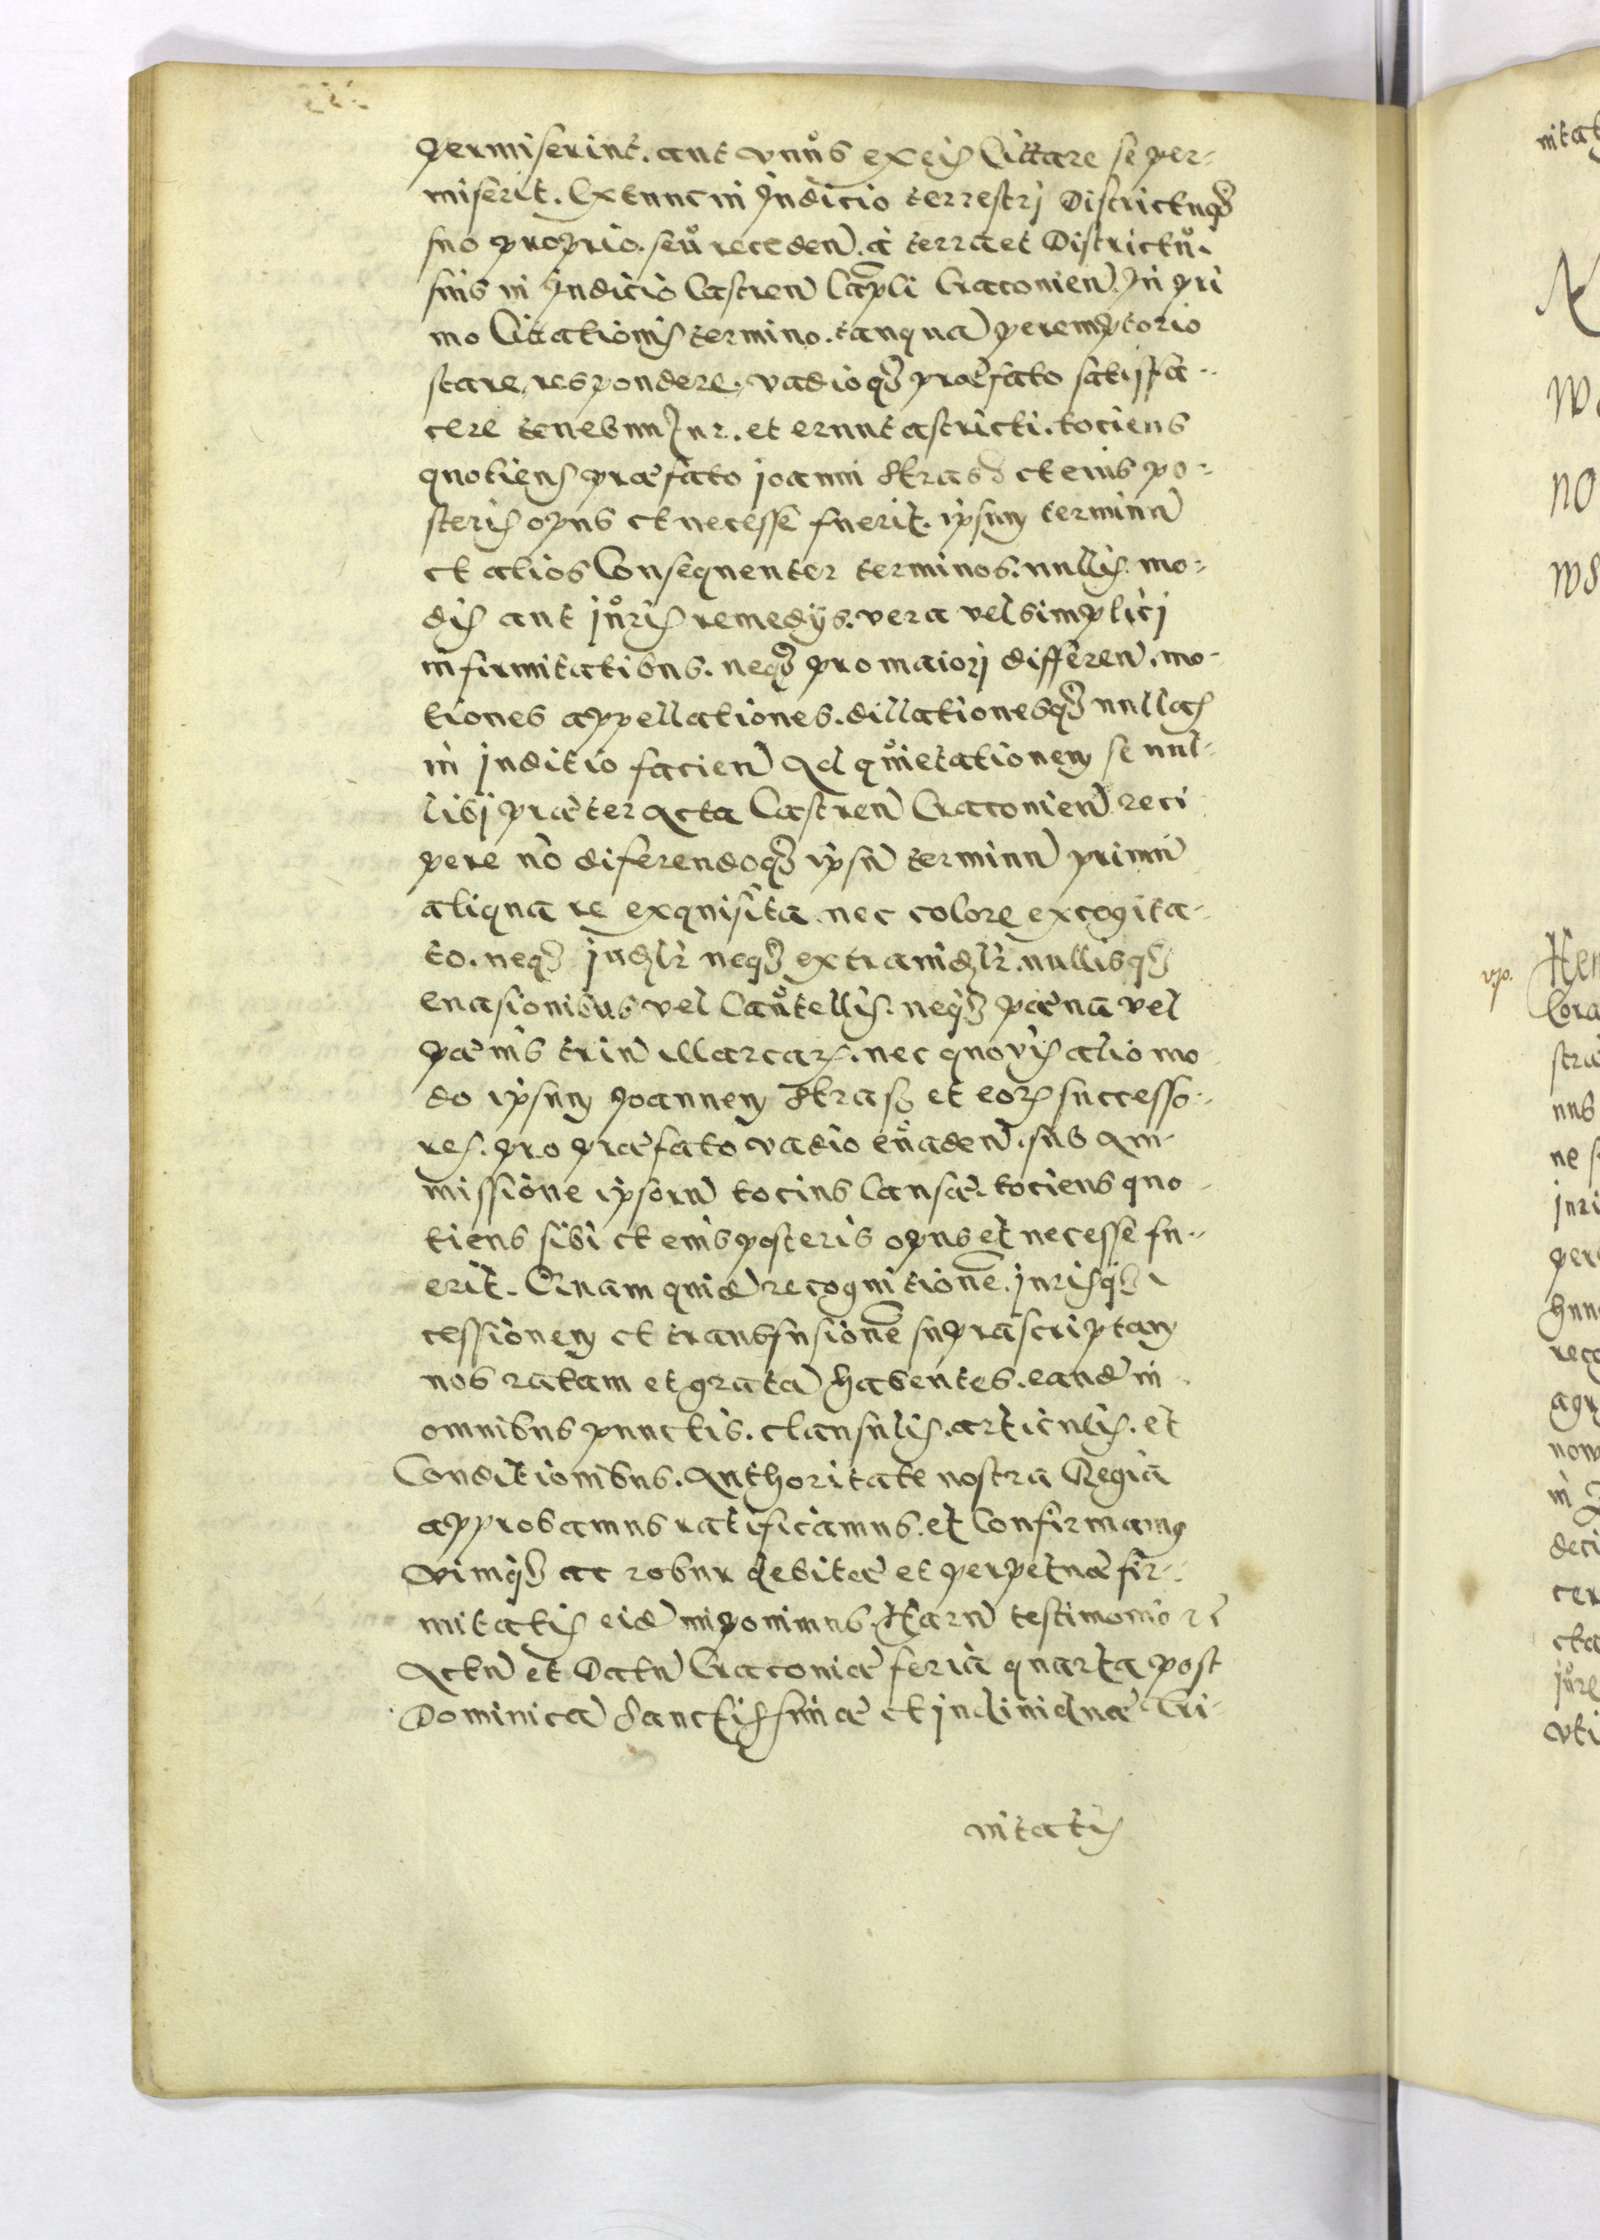 permiserint. aut vnus ex eis Cittare se per-
miserit. Extunc in Judicio terrestrj Districtuqȝ
suo proprio. seu receden̄. à terra et Districtu
suis in Judicio Castren̄ Cap̄li Cracouien̄. In pri
mo Citationis termino. tanquā peremptorio
stare, respondere, vadioqȝ præfato satisfa-
cere tenebuntur. et erunt astricti. tociens
quotiens præfato joanni Strasȝ et eius po-
steris opus et necesse fuerit. ipsum terminū
et alios Consequenter terminos. nullis mo-
dis aut juris remedijs. vera vel simplicj
infirmitatibus. neqȝ pro maiorj differen̄. mo-
tiones appellationes. dillationesqȝ nullas
in juditio facien̄ Ad quietationem se nul-
libj præter Acta Castren̄ Cracouien̄ reci
pere nō diferendoqȝ ipsū terminū primū
aliqua re exquisita. nec colore excogita-
to. neqȝ judʒlr̄ neqȝ extraiudʒlr̄. nullisqȝ
euasionibus vel Cautellis. neqȝ pæna vel
pænis triū Marcarꝝ. nec quovis alio mo-
do ipsum Joannem Strasȝ et eorꝝ successo-
res. pro præfato vadio euaden̄. sub Am-
missione ipsorū tocius Causæ. tociens quo-
tiens sibi et eius posteris opus et necesse fu-
erit. Quam quidē recognitionē. jurisqȝ
cessionem et transfusionē suprascriptam
nos ratam et gratā habentes. eandē in
omnibus punctis. clausulis. articulis. et
Conditionibus. Authoritate nostra Regia
approbamus ratificamus. et Confirmamus
vimqȝ ac robur debitæ et perpetuæ fir-
mitatis eidē imponimus. Harū testimonio rē
Actū et Datū Cracouiæ feria quarta post
Dominicā Sanctissimæ et jndiuiduæ Tri-
nitatis